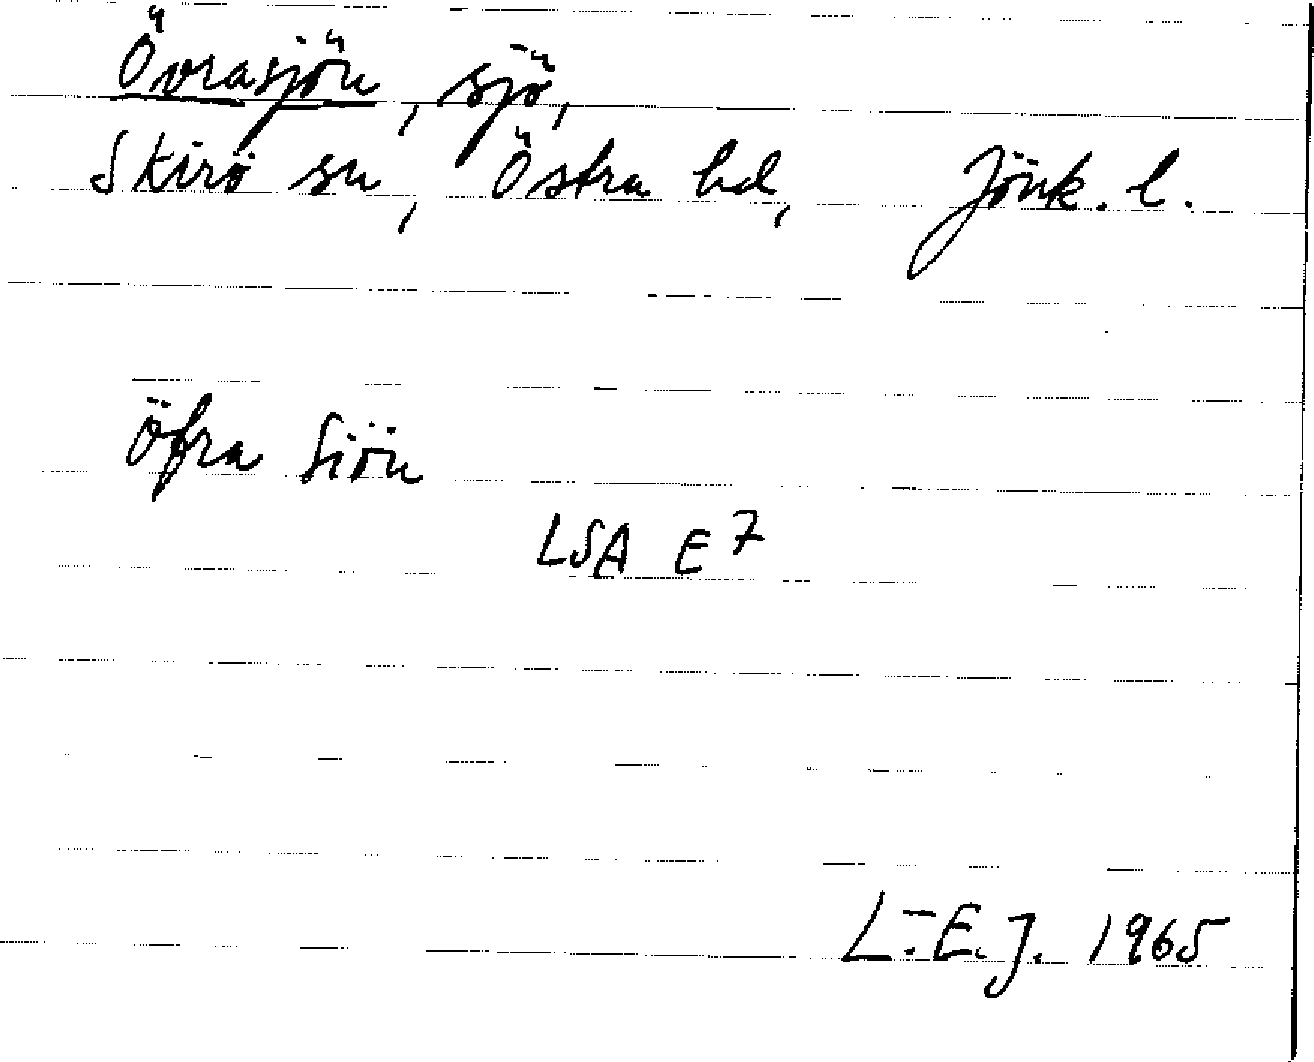 Övrasjön, sjö,
Skirö sn, Östra hd, Jönk. l.
Öfra Siön
LSA E7
L.-E.J. 1965